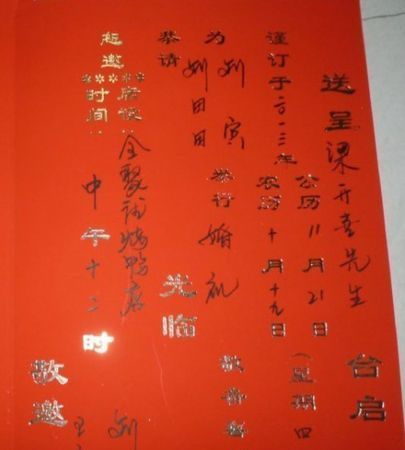 送呈梁开喜先生台启
谨订于二〇一三年
公历11月21日(星期四
农历十月十九日
为
刘寅
刘田田
举行婚礼
敬备
恭请
光临
席设：全聚烤鸭店
时间：中午十二时
敬邀
刘
王